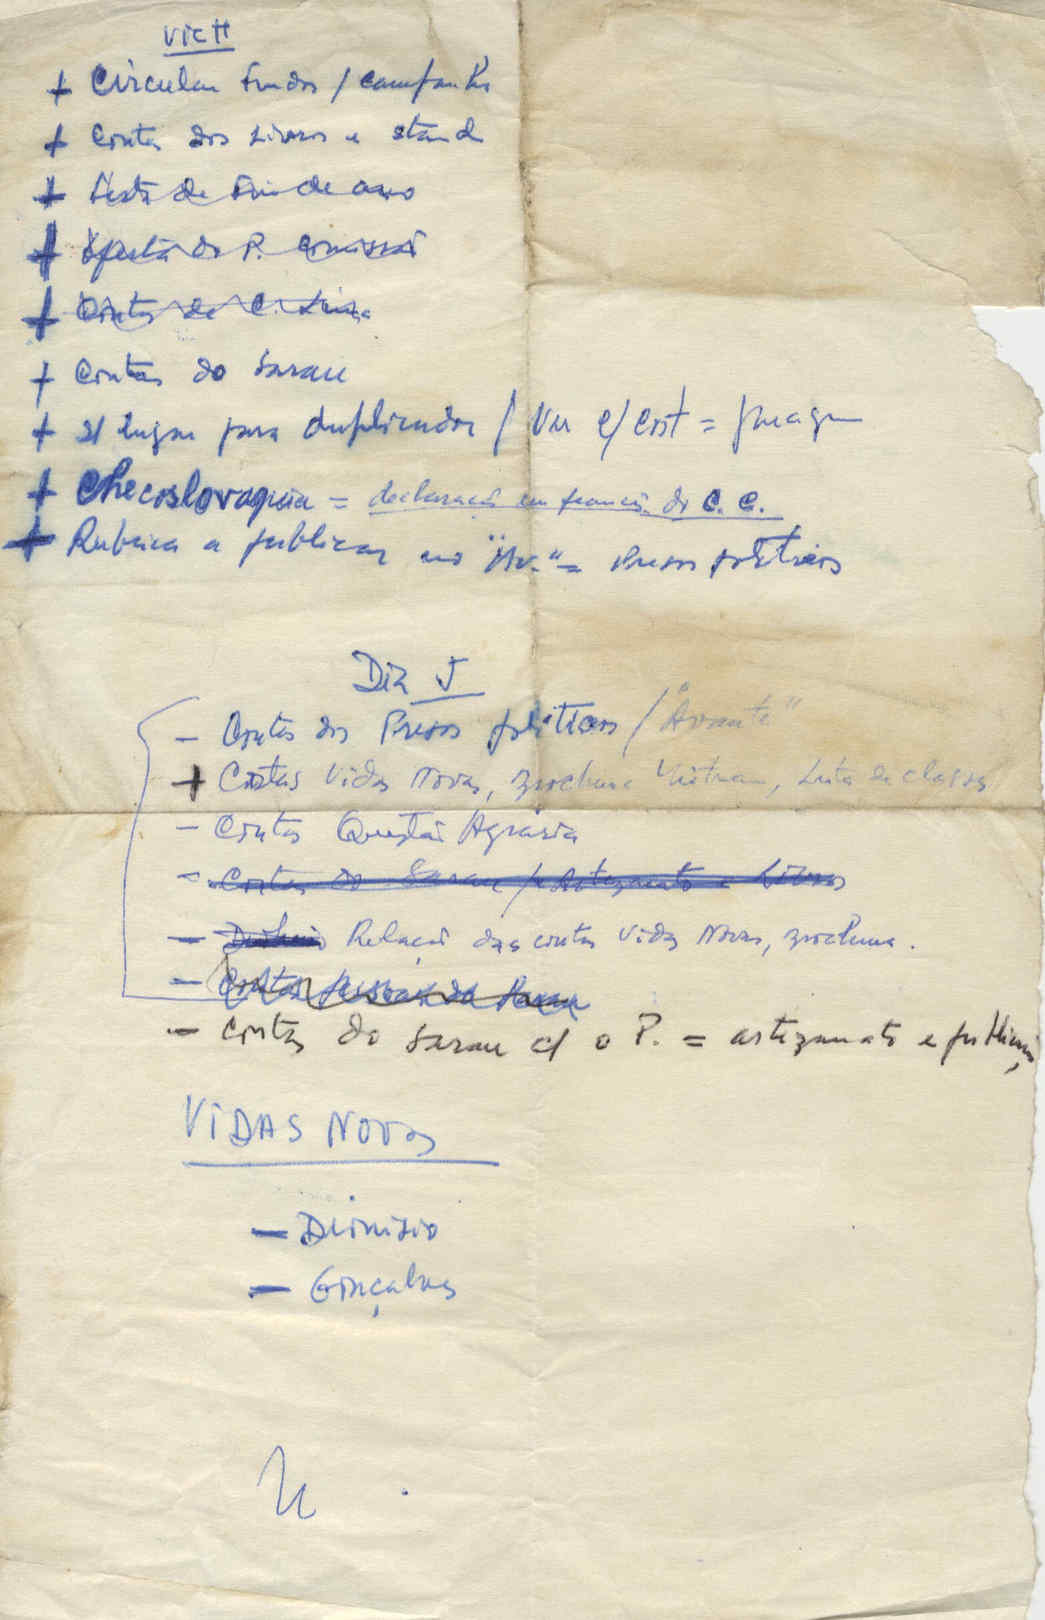 + Circular Fundos / campanha
+ Contas dos Livros e stand
+ Festa de Fim de ano
+ Oferta do P. Comissão
+ Contas de C.
+ Contas do Sarau
+ lugar para duplicador / Ver c/ Cost =
+ Checoslovaquia = declaração em francês do C. C.
+ Rubrica a publicar no "Av." = Presos políticos
Dia 5
- Contas dos Presos políticos / "Avante"
+ Contas Vidas Novas, Brochura Vietnam, Luta de classes
- Contas Questão Agrária
- Contas do Sarau / Artezanato e Livros
- Relação das contas Vidas Novas, Brochura.
- Contas
- Contas do Sarau c/ o P. = artezanato e
VIDAS NOVAS
- Dionísio
- Gonçalves